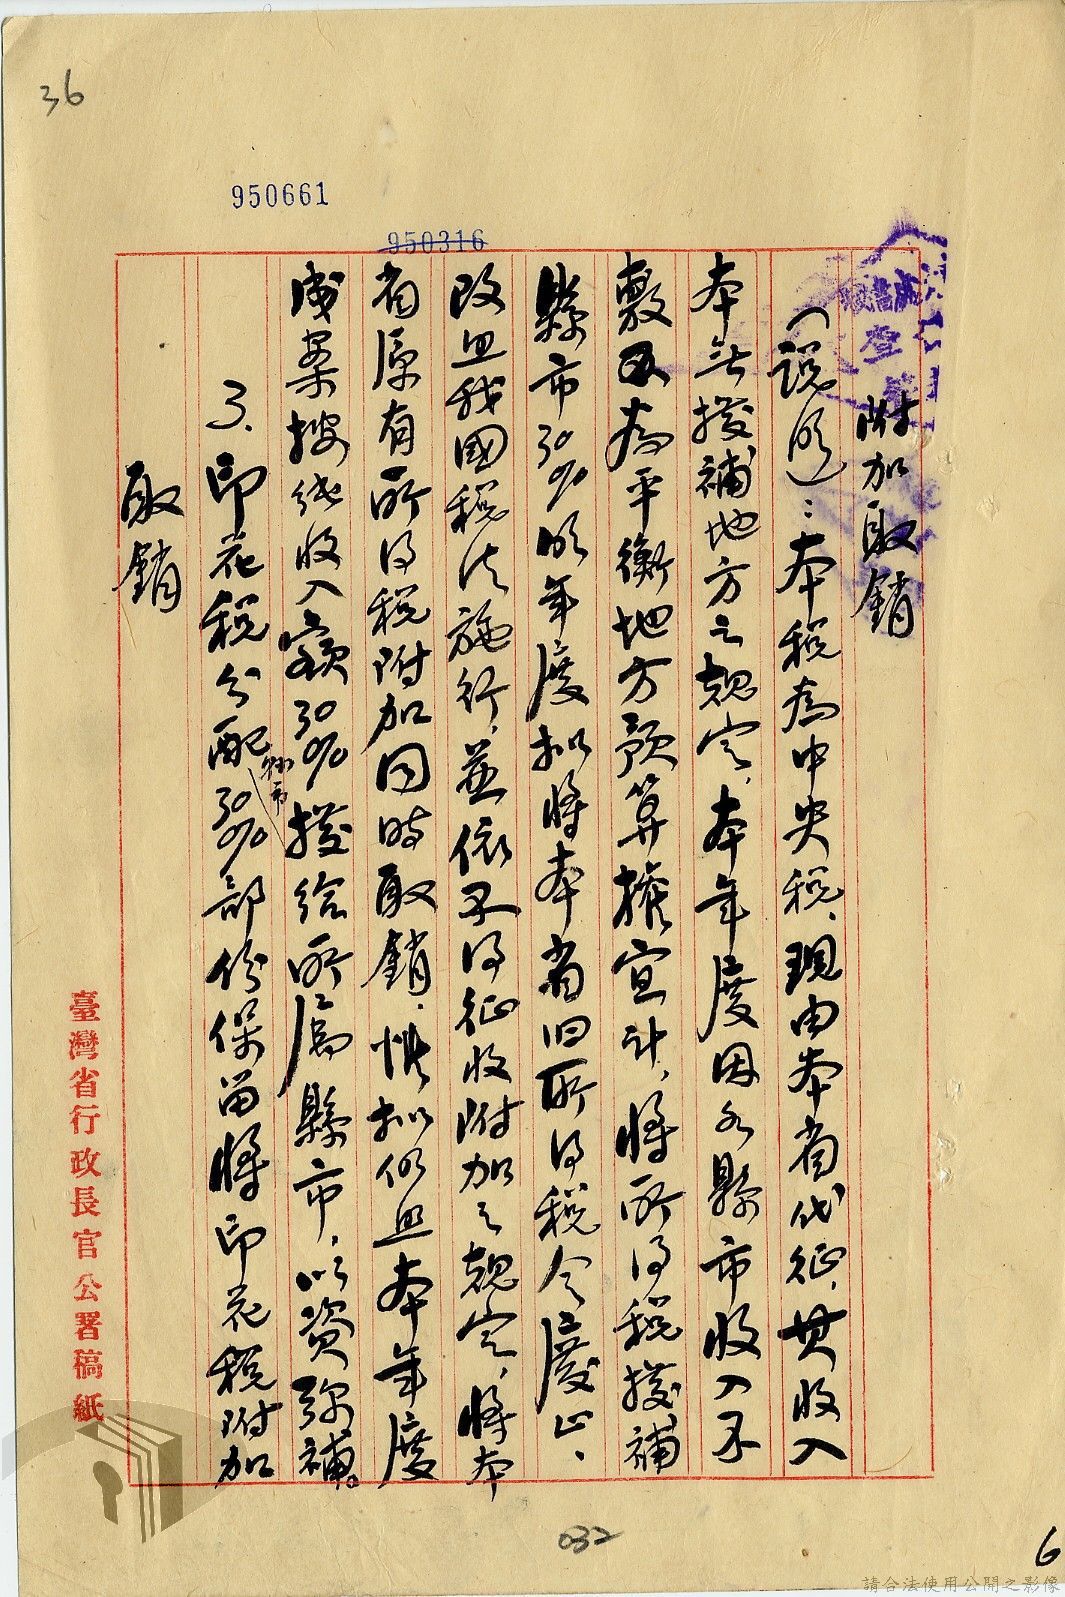 36
950661
950316
附加取銷
（說明）：本稅為中央稅、現由本省代征、其收入
本無撥補地方之規定、本年度因各縣市收入不
敷為平衡地方預算權宜計、將所得稅撥補
縣市30%明年度擬將本省旧所得稅令廢止、
改照我國稅法施行、並依不得征收附加之規定、將本
省原有所得稅附加同時取銷、惟擬仍照本年度
成案按純收入額30%撥給所屬縣市、以資弥補。
3、印花稅分配縣市30%部份保留將印花稅附加
取銷
臺灣省行政長官公署稿紙
032
6
請合法使用公開之影像